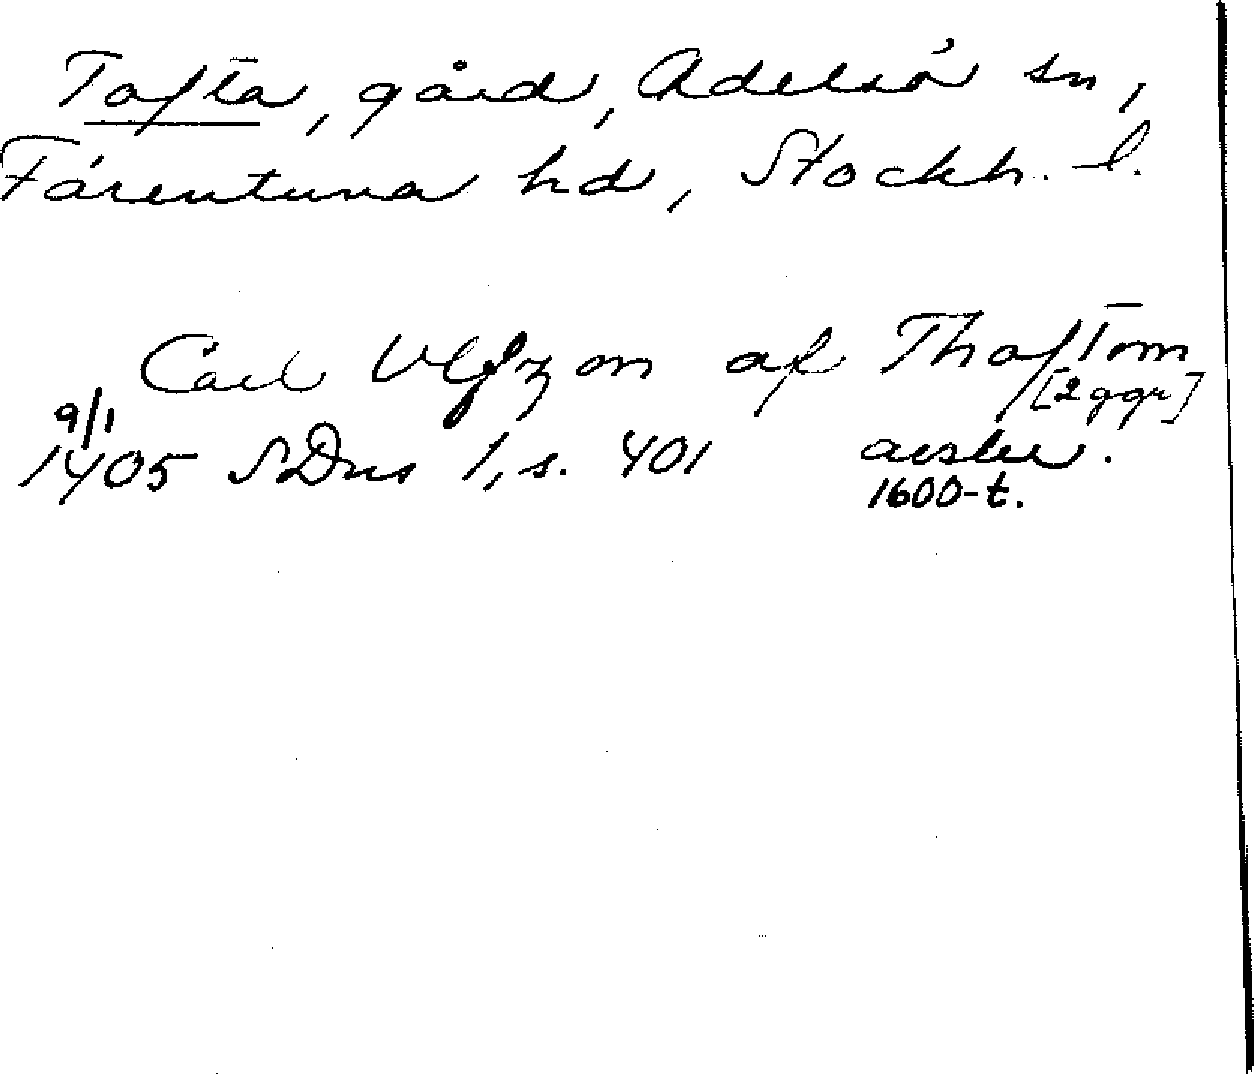 Tofta, gård, Adelsö sn,
Färentuna hd, Stockh. l.
Carl Vlfzon af Thoftom
[2 ggr]
9/1
1405 SDns 1, s. 401 avskr.
1600-t.